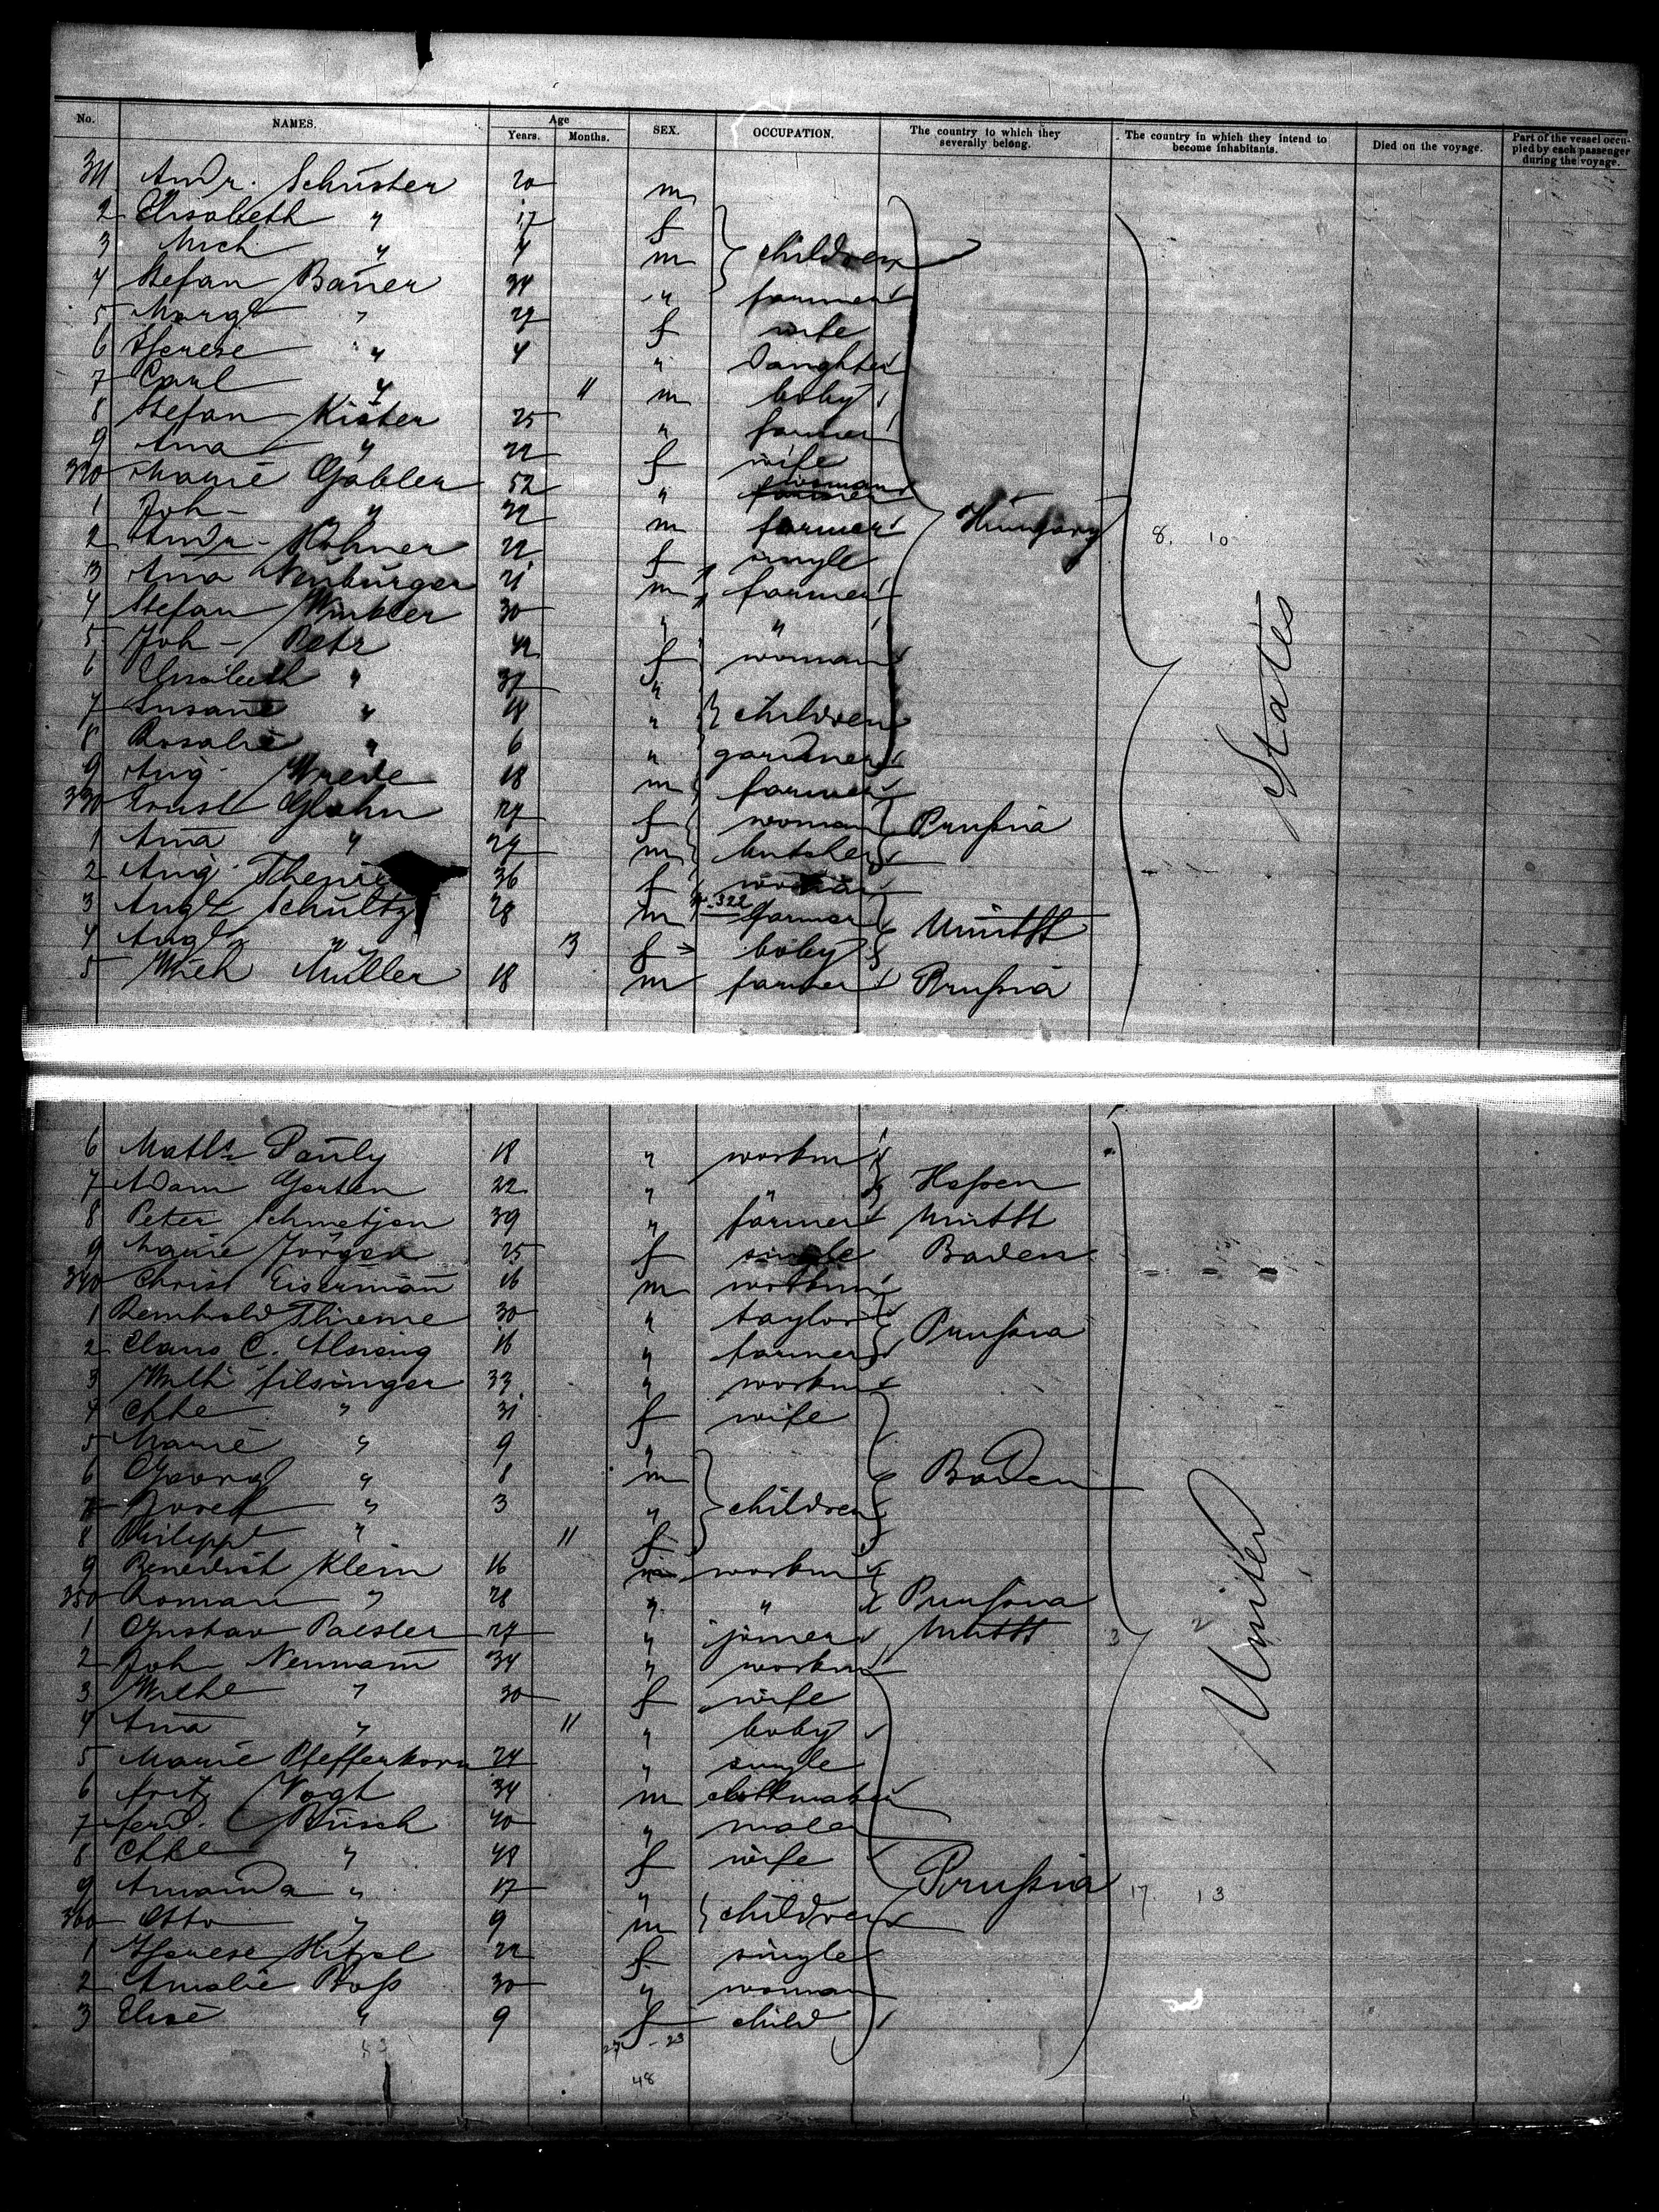 No. NAMES. Age Years. Months. SEX. OCCUPATION. The country to which they severally belong. The country in which they intend to become inhabitants. Died on the voyage. Part of the vessel occupied by each passenger during the voyage.
311 Andr. Schuster 20 m
2 Elisabeth " 17 f
3 Mich " 7 m children
4 Stefan Bauer 34 " farmer
5 Margt " 29 f wife
6 Therese " 4 " Daughter
7 Carl " 11 m baby
8 Stefan Kister 25 " farmer
9 Anna " 22 f wife
320 Marie Gabler 52 " woman
1 Joh " 22 m farmer Hungary 8. 10
2 Andr. Höhner 22 f single
3 Anna 21 m farmer
4 Stefan Winkler 30 " "
5 Joh Petz 42 f woman
6 Elisabeth " 37 "
7 Susane " 18 " children
8 Rosalie " 6 " gardner
9 Aug. Wrede 18 m farmer
330 Ernst Glahn 27 f woman Prussia
1 Anna " 27 m butcher
2 Aug. 36 f woman
3 Augte Schultz 28 m 322 farmer
4 Augte " 3 f baby
5 Wilh Müller 18 m farmer Prussia
States
6 Maths Pauly 18 " workm
7 Adam Garten 22 " " Hessen
8 Peter Schmetjen 39 " farmer
9 Marie Jörger 25 f single Baden
340 Christ Eiserman 16 m workm
1 Reinhold Thieme 30 " taylor Prussia
2 Claus C. 16 " farmer
3 Wilh Filsinger 33 " workm
4 Chre " 31 f wife
5 Marie " 9 "
6 Georg " 8 m Baden
7 Josef " 3 " children
8 Philipp " 11 f
9 Benedict Klein 16 workm
350 Roman " 28 " " Prussia
1 Gustav Paesler 27 " joiner 3 2
2 Joh Neumann 34 " workm
3 Wilhe " 30 f wife
4 Anna " 11 " baby
5 Marie Pfefferkorn 24 " single
6 Fritz Vogt 34 m clothmaker
7 Ferd. Busch 40 "
8 Chre " 48 f wife
9 Amanda " 17 " Prussia 17. 13
360 Otto " 9 m children
1 Therese 22 f single
2 Amalie Boss 30 " woman
3 Elise " 9 f child
United
25 - 23
48